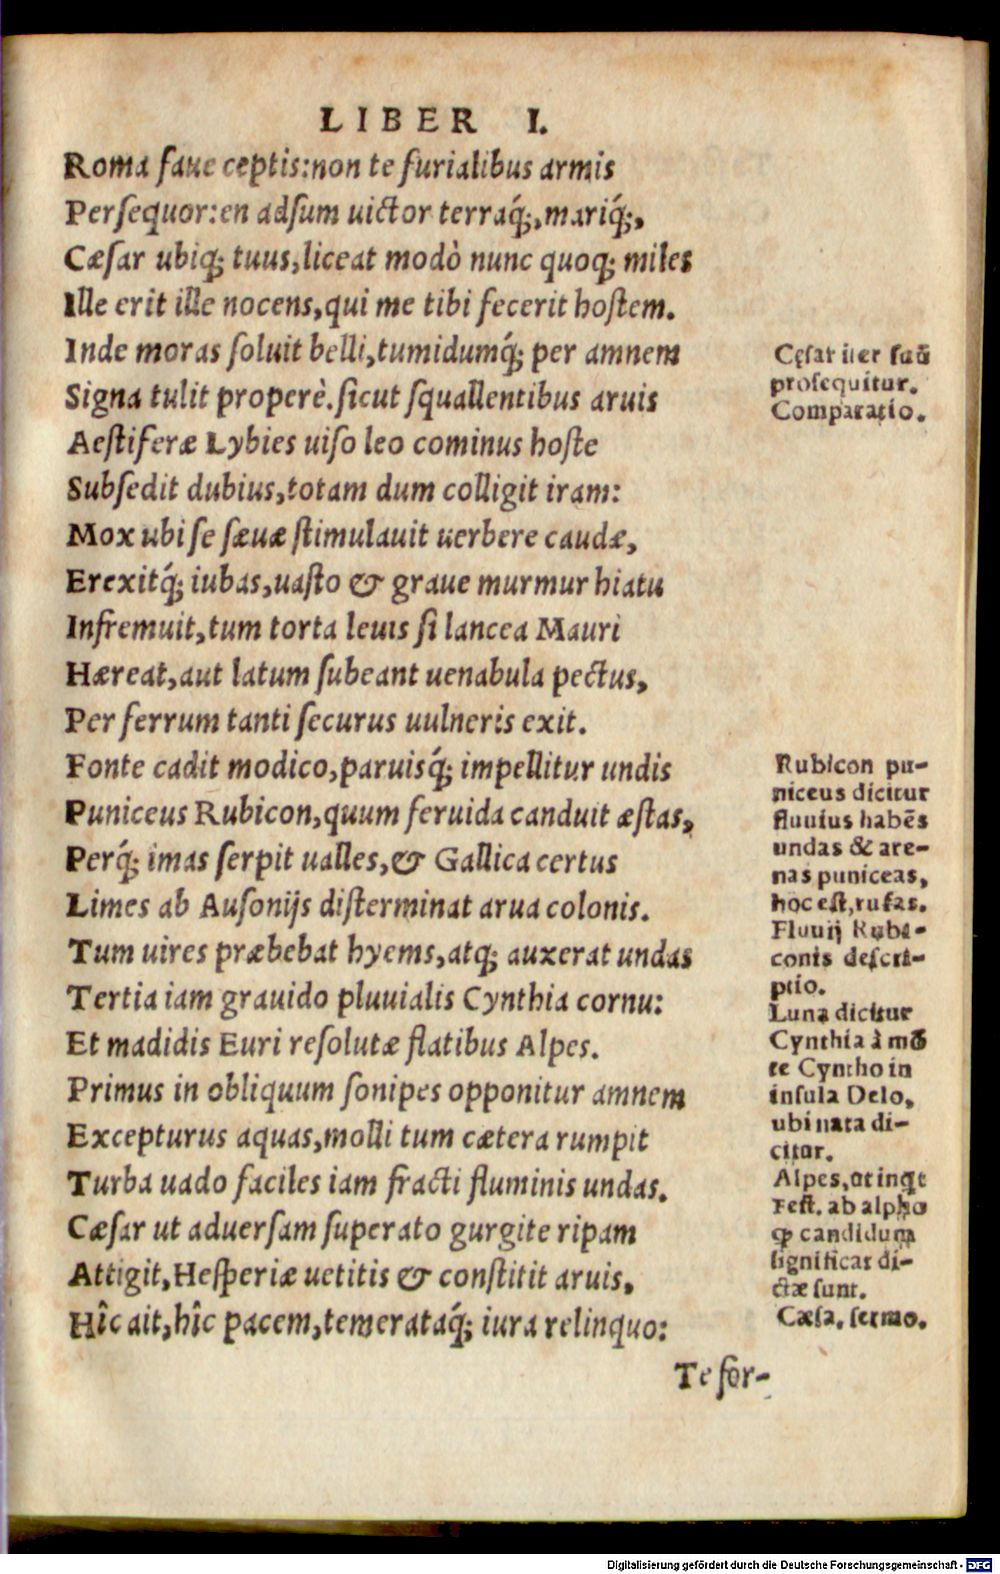 LIBER I.
Roma faue ceptis:non te furialibus armis
Persequor:en adsum uictor terraq́;,mariq́;,
Cæsar ubiq; tuus,liceat modò nunc quoq; miles
Ille erit ille nocens,qui me tibi fecerit hostem.
Inde moras soluit belli,tumidumq́; per amnem
Signa tulit properè.sicut squallentibus aruis
Aestiferæ Lybies uiso leo cominus hoste
Subsedit dubius,totam dum colligit iram:
Mox ubi se sæuæ stimulauit uerbere caudæ,
Erexitq́; iubas,uasto & graue murmur hiatu
Infremuit,tum torta leuis si lancea Mauri
Hæreat,aut latum subeant uenabula pectus,
Per ferrum tanti securus uulneris exit.
Fonte cadit modico,paruisq́; impellitur undis
Puniceus Rubicon,quum feruida canduit æstas,
Perq́; imas serpit ualles,& Gallica certus
Limes ab Ausonijs disterminat arua colonis.
Tum uires præbebat hyems,atq; auxerat undas
Tertia iam grauido pluuialis Cynthia cornu:
Et madidis Euri resolutæ flatibus Alpes.
Primus in obliquum sonipes opponitur amnem
Excepturus aquas,molli tum cætera rumpit
Turba uado faciles iam fracti fluminis undas.
Cæsar ut aduersam superato gurgite ripam
Attigit,Hesperiæ uetitis & constitit aruis,
Hîc ait,hîc pacem,temerataq́; iura relinquo:
Te for-
Cęsar iter suũ
prosequitur.
Comparatio.
Rubicon pu-
niceus dicitur
fluuius habẽs
undas & are-
nas puniceas,
hoc est,rufas.
Fluuij Rubi-
conis descri-
ptio.
Luna dicitur
Cynthia à mõ
te Cyntho in
insula Delo,
ubi nata di-
citur.
Alpes,ut inqt
Fest. ab alpho
ꝙ candidum
significat di-
ctæ sunt.
Cæsa. sermo.
Digitalisierung gefördert durch die Deutsche Forschungsgemeinschaft - DFG